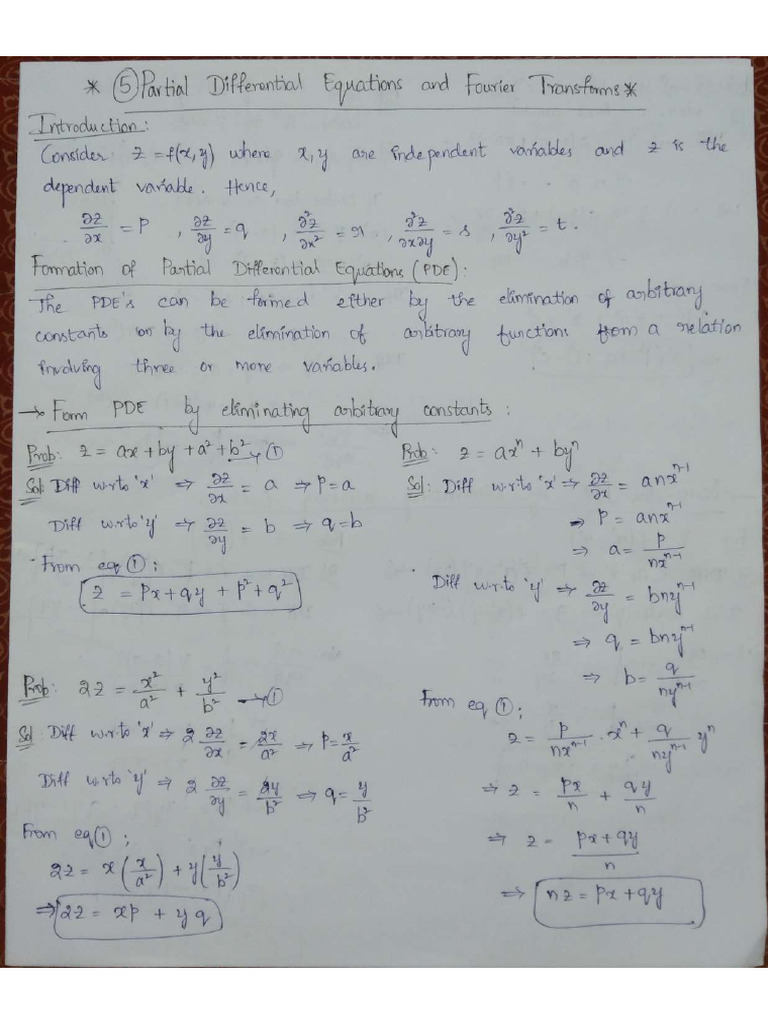 * ⑤ Partial Differential Equations and Fourier Transforms *
Introduction:
Consider z = f(x, y) where x, y are independent variables and z is the
dependent variable. Hence,
∂z/∂x = p , ∂z/∂y = q , ∂²z/∂x² = r , ∂²z/∂x∂y = s , ∂²z/∂y² = t .
Formation of Partial Differential Equations (PDE):
The PDE's can be formed either by the elimination of arbitrary
constants or by the elimination of arbitrary functions from a relation
involving three or more variables.
→ Form PDE by eliminating arbitrary constants :
Prob: z = ax + by + a² + b² → ①
Sol: Diff w.r.to 'x' ⇒ ∂z/∂x = a ⇒ p = a
Diff w.r.to 'y' ⇒ ∂z/∂y = b ⇒ q = b
From eq ① ;
z = px + qy + p² + q²
Prob: 2z = x²/a² + y²/b² → ①
Sol Diff w.r.to 'x' ⇒ 2 ∂z/∂x = 2x/a² ⇒ p = x/a²
Diff w.r.to 'y' ⇒ 2 ∂z/∂y = 2y/b² ⇒ q = y/b²
From eq ① ;
2z = x(x/a²) + y(y/b²)
⇒ 2z = xp + yq
Prob: z = axⁿ + byⁿ
Sol: Diff w.r.to 'x' ⇒ ∂z/∂x = anxⁿ⁻¹
⇒ p = anxⁿ⁻¹
⇒ a = p/nxⁿ⁻¹
Diff w.r.to 'y' ⇒ ∂z/∂y = bnyⁿ⁻¹
⇒ q = bnyⁿ⁻¹
⇒ b = q/nyⁿ⁻¹
From eq ① ;
z = p/nxⁿ⁻¹ . xⁿ + q/nyⁿ⁻¹ yⁿ
⇒ z = px/n + qy/n
⇒ z = px + qy/n
⇒ nz = px + qy